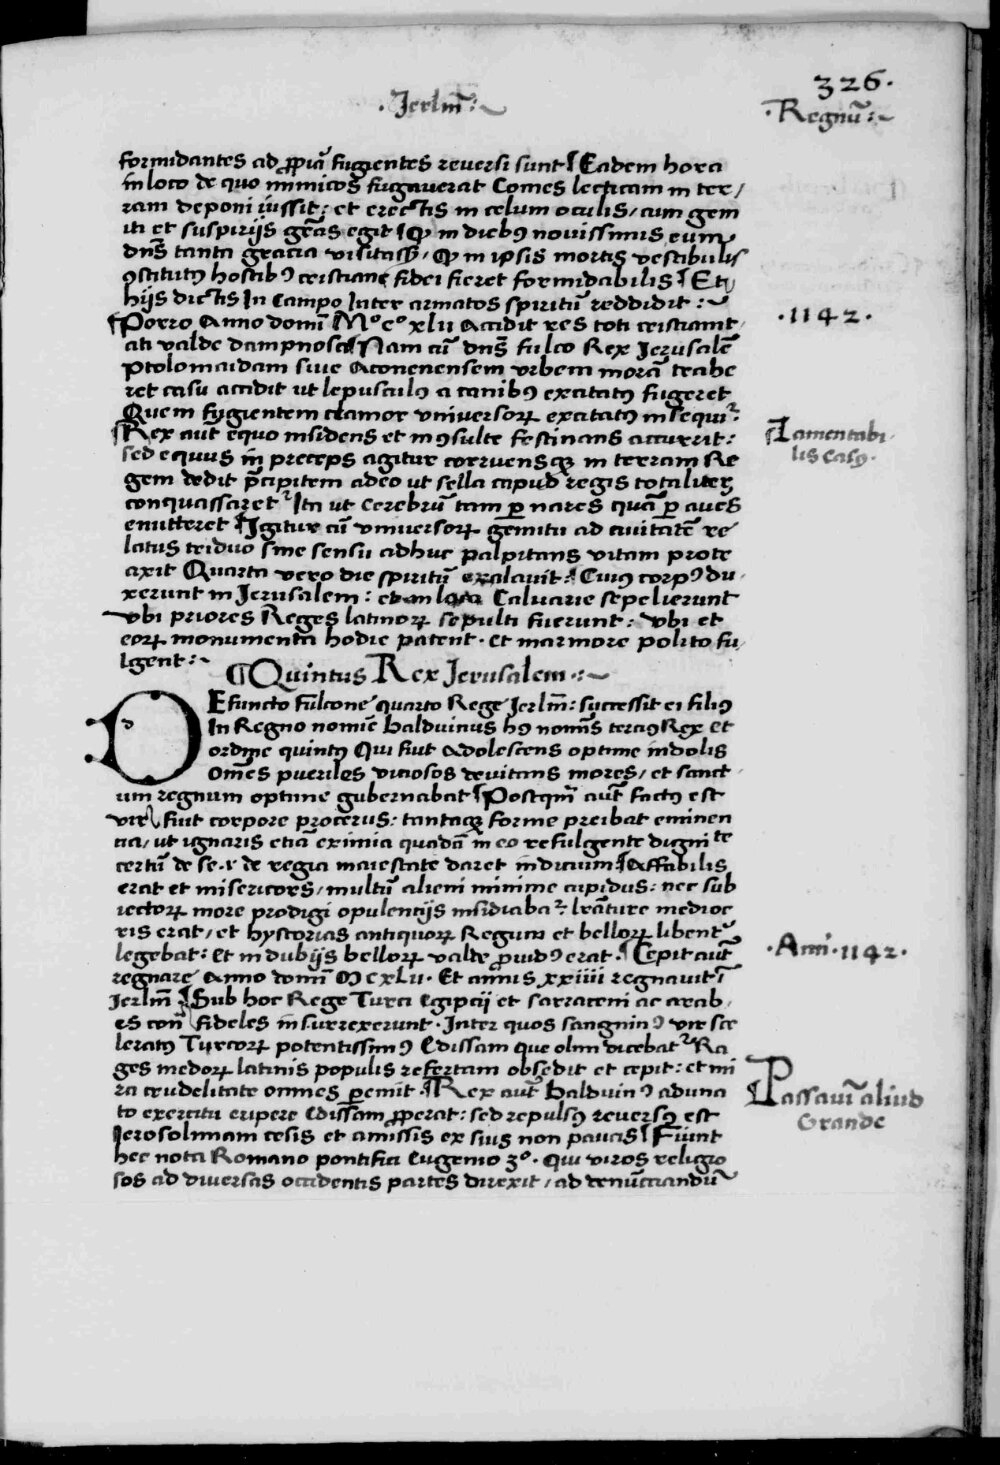 326.
·Jerlm̄:~
·Regnū:~
formidantes ad ꝓpiā fugientes reversi sunt ¶Eadem hora
in loco de quo inimicos fugaverat Comes lecticam in ter/
ram deponi iussit: et erectis in celum oculis/ cum gem
itu et suspirijs grās egit ꝙ in diebꝰ novissimis eum
dn̄s tanta gracia visitass; ꝙ in ipsis mortis vestibulis
ꝯstitutꝰ hostibꝰ cristiane fidei fieret formidabilis ¶Et
hijs dictis In Campo Inter armatos spiritū reddidit :~
¶Porro Anno domī Mº cº xlii Accidit res toti cristianit
·1142·
ati valde dampnosa ¶Nam cū dn̄s fulco Rex Jerusalē
Ptolomaidam sive Aconenensem urbem morā trahe
ret casu accidit ut lepusculꝰ a canibꝰ excitatꝰ fugeret
Quem fygientem clamor universoꝝ excitatꝰ insequiᷣ.
¶Rex aut̄ equo insidens et inꝯsulte festinans accurrit:
¶Lamentabi
lis casꝰ.
sed equus in preceps agitur corruensqꝫ in terram Re
gem dedit p̄cipitem adeo ut sella capud regis totaliter
conquassaretᷣ Ita ut cerebrū tam ꝑ nares quā ꝑ aures
emitteret ¶Igitur cū universoꝝ gemitu ad civitatē re
latus triduo sine sensu adhuc palpitans vitam prote
axit Quarta vero die spiritū exalavit: Cuiꝰ corpꝰ du
xerunt in Jerusalem: et in loco Calvarie sepelierunt
ubi priores Reges latinoꝝ sepulti fuerunt: ubi et
eoꝝ monumenta hodie patent. et marmore polito fu
lgent:~
¶Quintus Rex Jerusalem:~
DEfuncto fulcone quarto Rege Jerlm̄: successit ei filiꝰ
In Regno nomīe balduinus hꝰ nomīs terciꝰ Rex et
ordine quintꝰ Qui fuit Adolescens optime indolis
Omēs pueriles viciosos devitans mores/ et sanct
um regnum optime gubernabat ¶Postqm̄ aut̄ factꝰ est
vir fuit corpore procerus: tantaqꝫ forme preibat eminen
cia/ ut ignaris etiā eximia quadā in eo refulgente dignite
certū de se .r de regia maiestate daret indicium ¶Affabilis
erat et misericors/ multū alieni minime cupidus: nec sub
iectoꝝ more prodigi opulentijs insidiabaᷣ: lrāture medioc
ris erat/ et hystorias antiquoꝝ Regum et belloꝝ libentᷣ
legebat: et in dubijs belloꝝ valde ꝓvidꝰ erat. ¶Cepit aut̄
·Anni·1142·
regnare Anno domī M cxlii. Et annis xxiiii regnavit ī
Jerlm̄ ¶Sub hoc Rege Turci Egipcii et sarraceni ac arab
es con̄ fideles insurrexerunt. Inter quos sanguinꝰ vir sce
leratꝰ Turcoꝝ potentissimꝰ Edissam que olim dicebatᷣ Ra
ges medoꝝ latinis populis refertam obsedit et cepit: et mi
ra crudelitate omnes ꝑemit. ¶Rex aut̄ balduinꝰ aduna
¶Passaiuū aliud
Grande
to exercitu eripere Edissam ꝓperat: sed repulsꝰ reversꝰ est
Jerosolimam cesis et amissis ex suis non paucis ¶Fiunt
hec nota Romano pontifici Eugenio 3º. Qui viros religio
sos ad diversas occidentis partes direxit/ ad denūcciandū